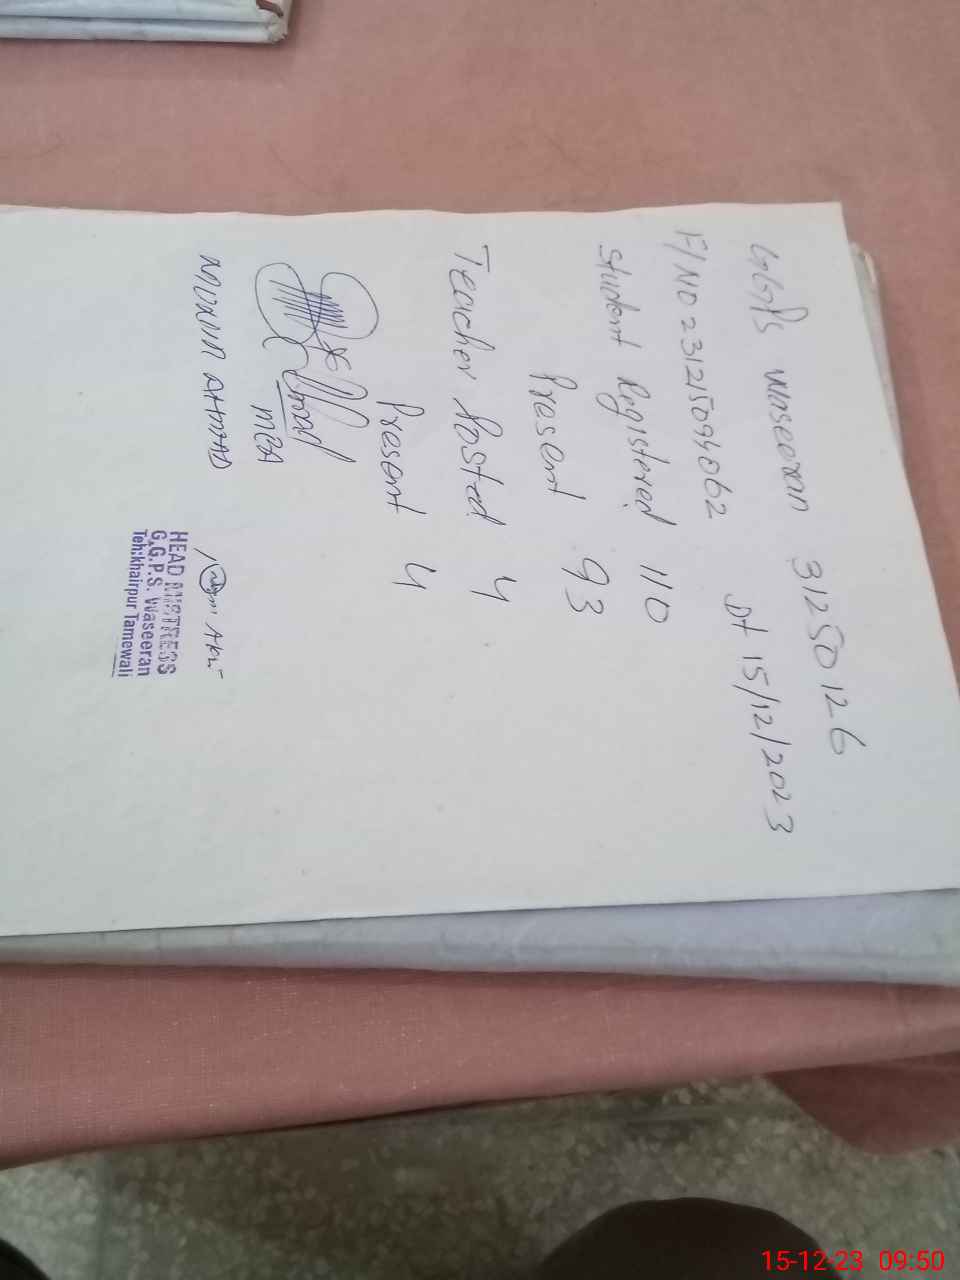 GGPS Waseeran 31250126
F/NO 231215094062 Dt 15/12/2023
Student Registered 110
Present 93
Teacher Posted 4
Present 4
MEA
AHMAD
HEAD MISTRESS
G.G.P.S. Waseeran
Teh:khairpur Tamewali
15-12-23 09:50